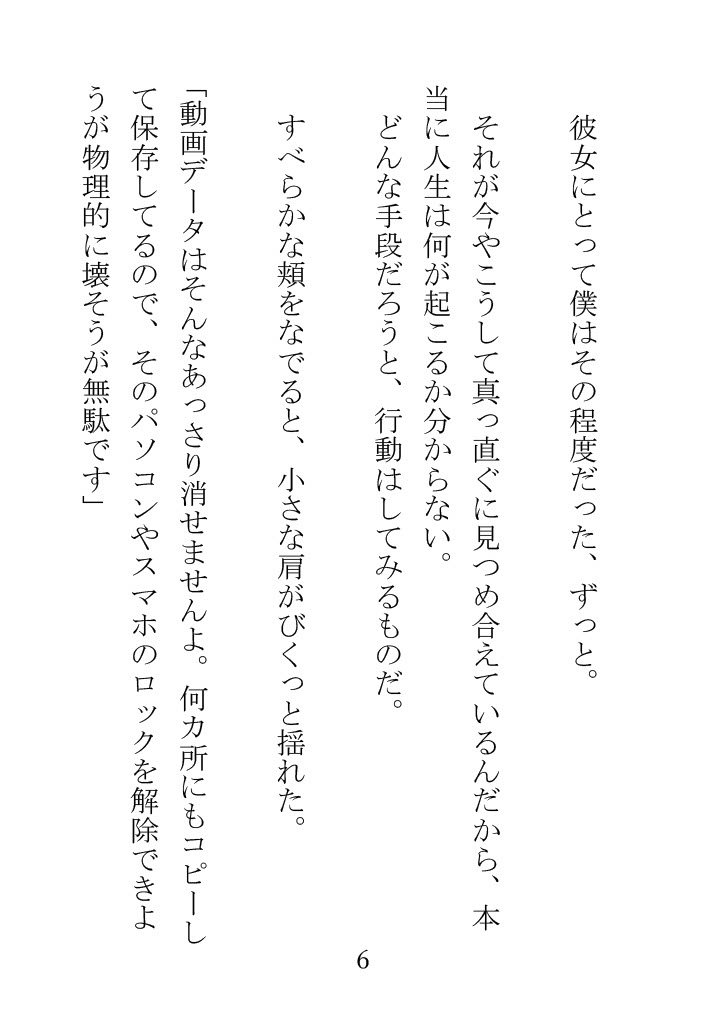 彼女にとって僕はその程度だった、ずっと。
それが今やこうして真っ直ぐに見つめ合えているんだから、本
当に人生は何が起こるか分からない。
どんな手段だろうと、行動はしてみるものだ。
すべらかな頬をなでると、小さな肩がびくっと揺れた。
「動画データはそんなあっさり消せませんよ。何カ所にもコピーし
て保存してるので、そのパソコンやスマホのロックを解除できよ
うが物理的に壊そうが無駄です」
6